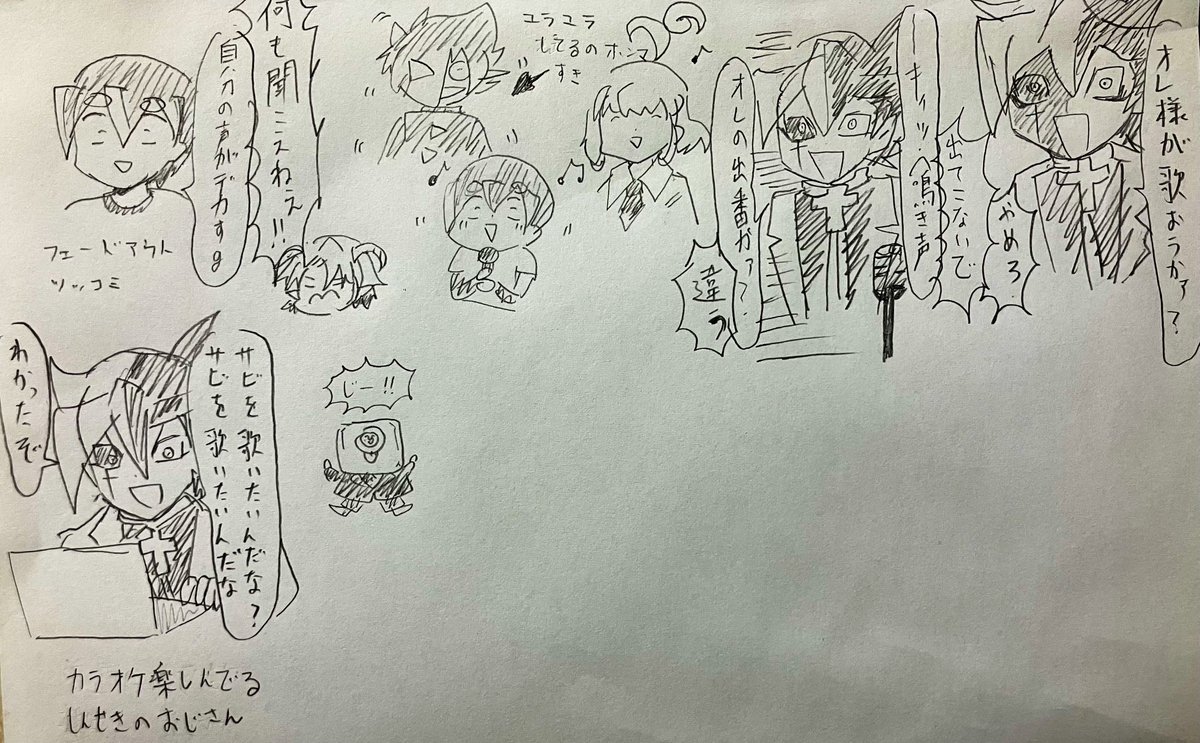 オレ様が歌おうかァ?
やめろ
出てこないで
キッツ 鳴き声
オレの出番かァ?
違う
ユラユラ
してるのホンマ
すき
何も聞こえねぇ!!
自分の声がデカすぎ
フェードアウト
ツッコミ
じー!!
サビを歌いたいんだな?
サビを歌いたいんだな
わかったぞ
カラオケ楽しんでる
しんせきのおじさん